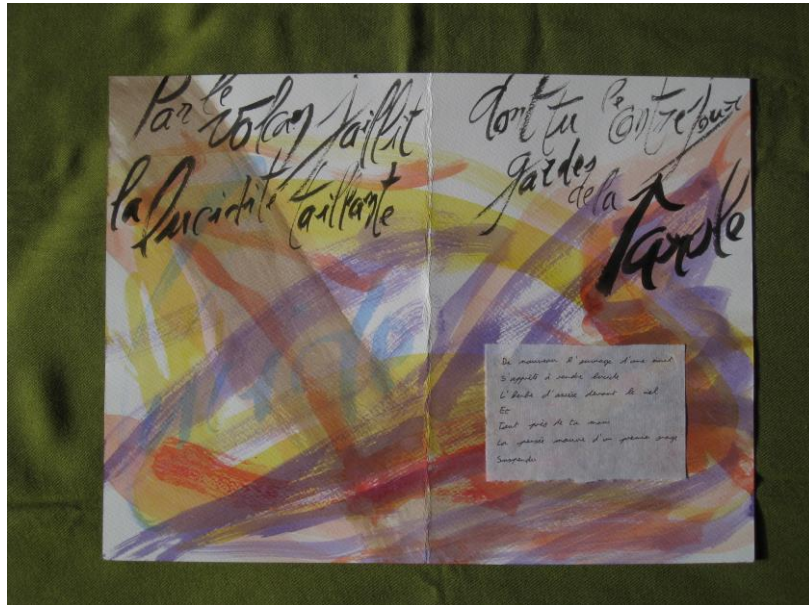 Par le volcan jaillit
la lucidité taillante
dont tu
gardes
le Contrejour
de la
Parole
De nouveau l'ouvrage d'une nuit
S'apprête à rendre lucide
L'herbe d'assise devant le
Et
Tout près de ta main
La pensée mauve d'un premier orage
Suspendu